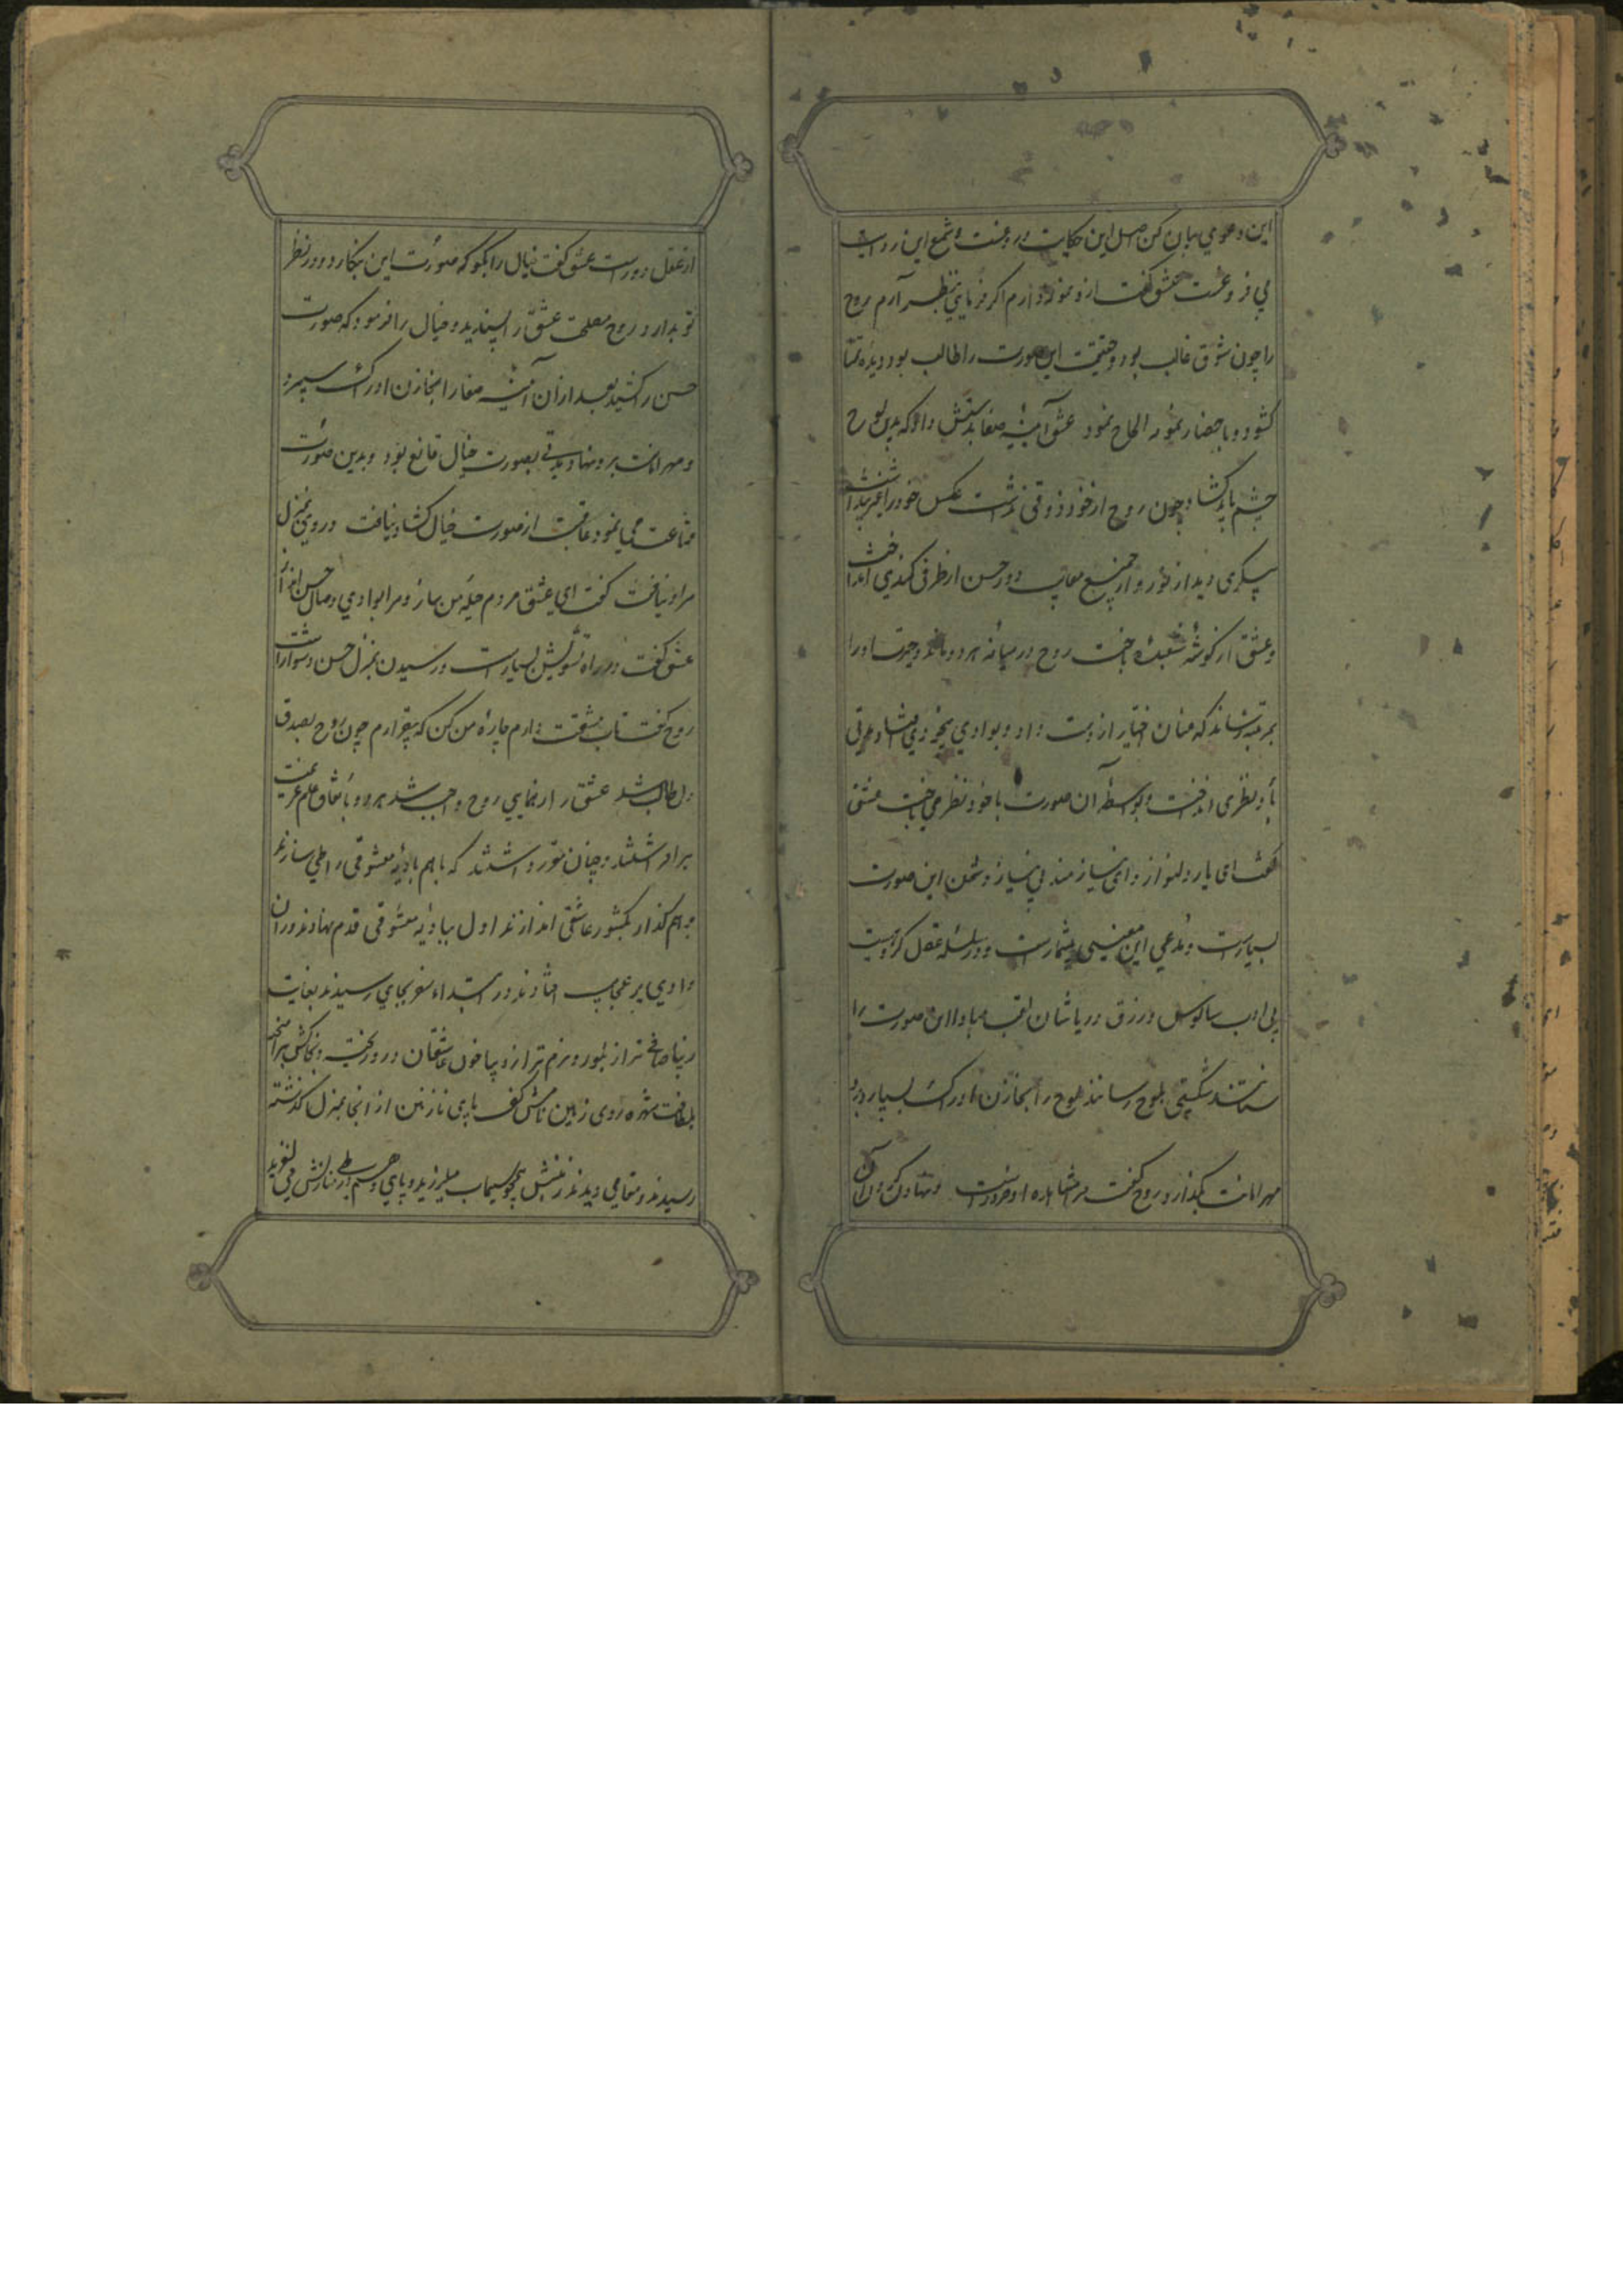 این دعوی بیان کن اصل این حکایت دروغست و شمع این روایت
بی فروغست عشق گفت ازو نمونه دارم اگر فرمایی بنظر آرم روح
را چون شوق غالب بود و حقیقت این صورت را طالب بود دیده تمنا
گشود و باحضار نمونه الحاح نمود عشق آینه صفا بدستش داد که بدین لوح
چشم باید گشاد چون روح از خود ذوقی نداشت عکس خود را غیر پنداشت
پیکری دید از نور و از جمیع معایب دور حسن از طرفی کمندی انداخت
و عشق از گوشه شعبده باخت روح در میانه هر دو بماند و حیرت او را
بمرتبه رساند که عنان اختیار از دست داد و بوادی بیخودی فتاد مدتی
باو نظری انداخت و بواسطه آن صورت با خود نظر می باخت عشق
گفت ای یار دلنواز و ای نیازمند بی نیاز دشمن این صورت
بسیارست و مدعی این معنی بیشمارست و در سلسله عقل گروهیست
بی ادب سالوس و زرق و ریا شان لقب مبادا این صورت را
شکستی بلوح رسانند لوح را بخازن ادراک بسپار و برو
مهر امانت بگذار روح گفت مرا مشاهده او ضرورست و نهادن آن
از عقل دورست عشق گفت خیال را بگو که صورت این بنگارد و در نظر
تو بدارد روح مصلحت عشق را پسندید و خیال را فرمود که صورت
حسن را کشید بعد از آن آینه صفا را بخازن ادراک سپرد
و مهر امانت برو نهاد مدتی بصورت خیال قانع بود و بدین صورت
قناعت می نمود عاقبت از صورت خیال گشاد نیافت و روی بمنزل
مراد نیافت گفت ای عشق مردم حیله من بساز و مرا بوادی وصال حسن انداز
عشق گفت درین راه تشویش بسیارست و رسیدن بمنزل حسن دشوارست
روح گفت تاب مشقت دارم چاره من کن که بیقرارم چون روح بصدق
دل طالب شد عشق را رهنمایی روح واجب شد هر دو باتفاق علم عزیمت
برافراشتند و چنان مقرر داشتند که با هم بادیه معشوقی را طی سازند
و با هم گذار بکشور عاشقی اندازند اول ببادیه معشوقی قدم نهادند و در آن
وادی پر عجایب افتادند در ابتداء سفر بجای رسیدند بغایت
زیبا صافی تر از بلور و نرم تر از دیبا خون عاشقان درو ریخته و بخاکش برآمیخته
بلطافت شهره روی زمین نامش کف پای نازنین از آنجا بمنزل گذشته
رسیدند و مقامی دیدند زمینش همچو سیماب میلرزید و پای وهم